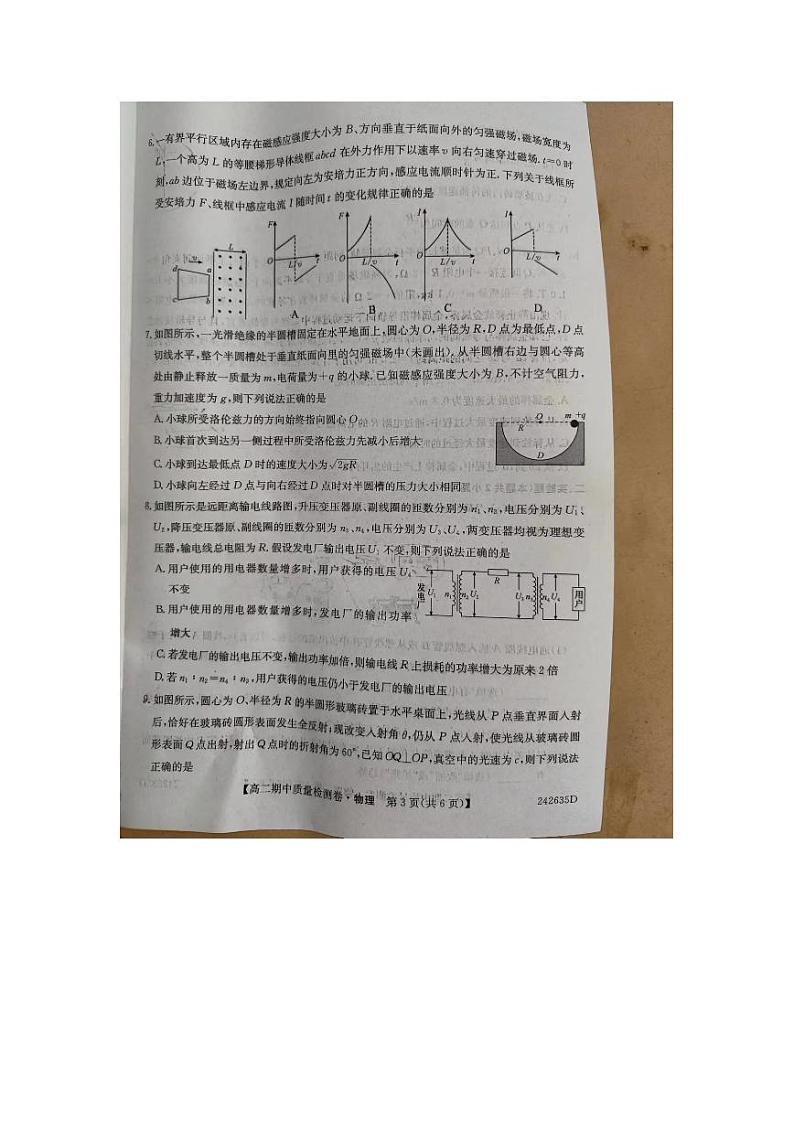 6.一有界平行区域内存在磁感应强度大小为 B、方向垂直于纸面向外的匀强磁场,磁场宽度为
L,一个高为 L 的等腰梯形导体线框 abcd 在外力作用下以速率 v 向右匀速穿过磁场.t=0 时
刻,ab 边位于磁场左边界,规定向左为安培力正方向,感应电流顺时针为正.下列关于线框所
受安培力 F、线框中感应电流 I 随时间 t 的变化规律正确的是
L
v
d a
c b
F
O L/v t
A
F
O L/v t
B
I
O L/v t
C
I
O L/v t
D
7.如图所示,一光滑绝缘的半圆槽固定在水平地面上,圆心为 O,半径为 R,D 点为最低点,D 点
切线水平,整个半圆槽处于垂直纸面向里的匀强磁场中(未画出).从半圆槽右边与圆心等高
处由静止释放一质量为 m,电荷量为+q 的小球.已知磁感应强度大小为 B,不计空气阻力,
重力加速度为 g,则下列说法正确的是
A.小球所受洛伦兹力的方向始终指向圆心 O
B.小球首次到达另一侧过程中所受洛伦兹力先减小后增大
C.小球到达最低点 D 时的速度大小为√2gR
D.小球向左经过 D 点与向右经过 D 点时对半圆槽的压力大小相同
O m +q
R
D
8.如图所示是远距离输电线路图,升压变压器原、副线圈的匝数分别为 n₁、n₂,电压分别为 U₁、
U₂,降压变压器原、副线圈的匝数分别为 n₃、n₄,电压分别为 U₃、U₄,两变压器均视为理想变
压器,输电线总电阻为 R.假设发电厂输出电压 U₁ 不变,则下列说法正确的是
A.用户使用的用电器数量增多时,用户获得的电压 U₄
不变
B.用户使用的用电器数量增多时,发电厂的输出功率
增大
C.若发电厂的输出电压不变,输出功率加倍,则输电线 R 上损耗的功率增大为原来 2 倍
D.若 n₁∶n₂=n₄∶n₃,用户获得的电压仍小于发电厂的输出电压
发电厂 U₁ n₁ n₂ U₂ R U₃ n₃ n₄ U₄ 用户
9.如图所示,圆心为 O、半径为 R 的半圆形玻璃砖置于水平桌面上,光线从 P 点垂直界面入射
后,恰好在玻璃砖圆形表面发生全反射;现改变入射角 θ,仍从 P 点入射,使光线从玻璃砖圆
形表面 Q 点出射,射出 Q 点时的折射角为 60°,已知 OQ⊥OP,真空中的光速为 c,则下列说法
正确的是
【高二期中质量检测卷·物理 第 3 页(共 6 页)】
242635D